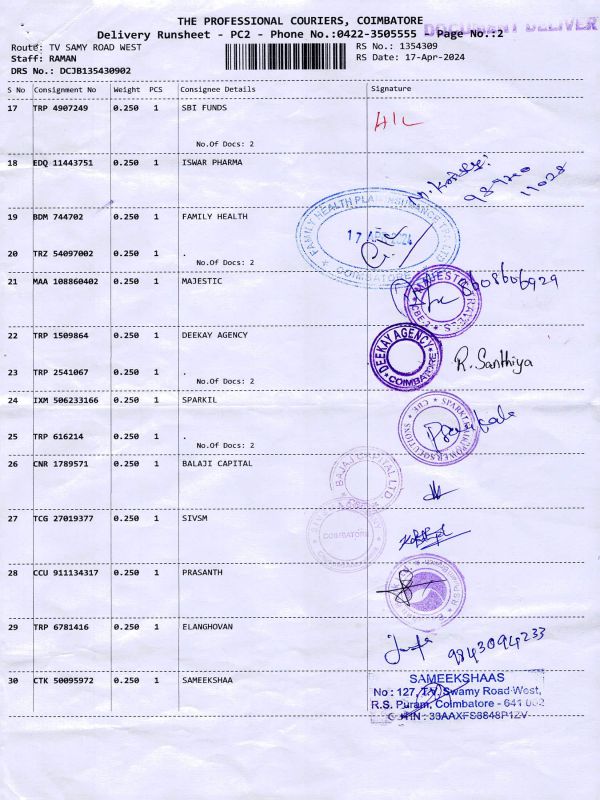 THE PROFESSIONAL COURIERS, COIMBATORE
DOCUMENT DELIVER
Delivery Runsheet - PC2 - Phone No.:0422-3505555 - Page No.:2
Route: TV SAMY ROAD WEST RS No.: 1354309
Staff: RAMAN RS Date: 17-Apr-2024
DRS No.: DCJB135430902
S No Consignment No Weight PCS Consignee Details Signature
17 TRP 4907249 0.250 1 SBI FUNDS
No.Of Docs: 2
18 EDQ 11443751 0.250 1 ISWAR PHARMA
19 BDM 744702 0.250 1 FAMILY HEALTH
FAMILY HEALTH PLAN INSURANCE TPA LTD
COIMBATORE
20 TRZ 54097002 0.250 1 .
No.Of Docs: 2
21 MAA 108860402 0.250 1 MAJESTIC
8608606929
22 TRP 1509864 0.250 1 DEEKAY AGENCY
DEEKAY AGENCY
COIMBATORE
R. Santhiya
23 TRP 2541067 0.250 1 .
No.Of Docs: 2
24 IXM 506233166 0.250 1 SPARKIL
25 TRP 616214 0.250 1 .
No.Of Docs: 2
26 CNR 1789571 0.250 1 BALAJI CAPITAL
BAJAJ CAPITAL LTD.
27 TCG 27019377 0.250 1 SIVSM
COIMBATORE
28 CCU 911134317 0.250 1 PRASANTH
29 TRP 6781416 0.250 1 ELANGHOVAN
9843094233
30 CTK 50095972 0.250 1 SAMEEKSHAA
SAMEEKSHAAS
No : 127, T.V. Swamy Road West,
R.S. Puram, Coimbatore - 641 002